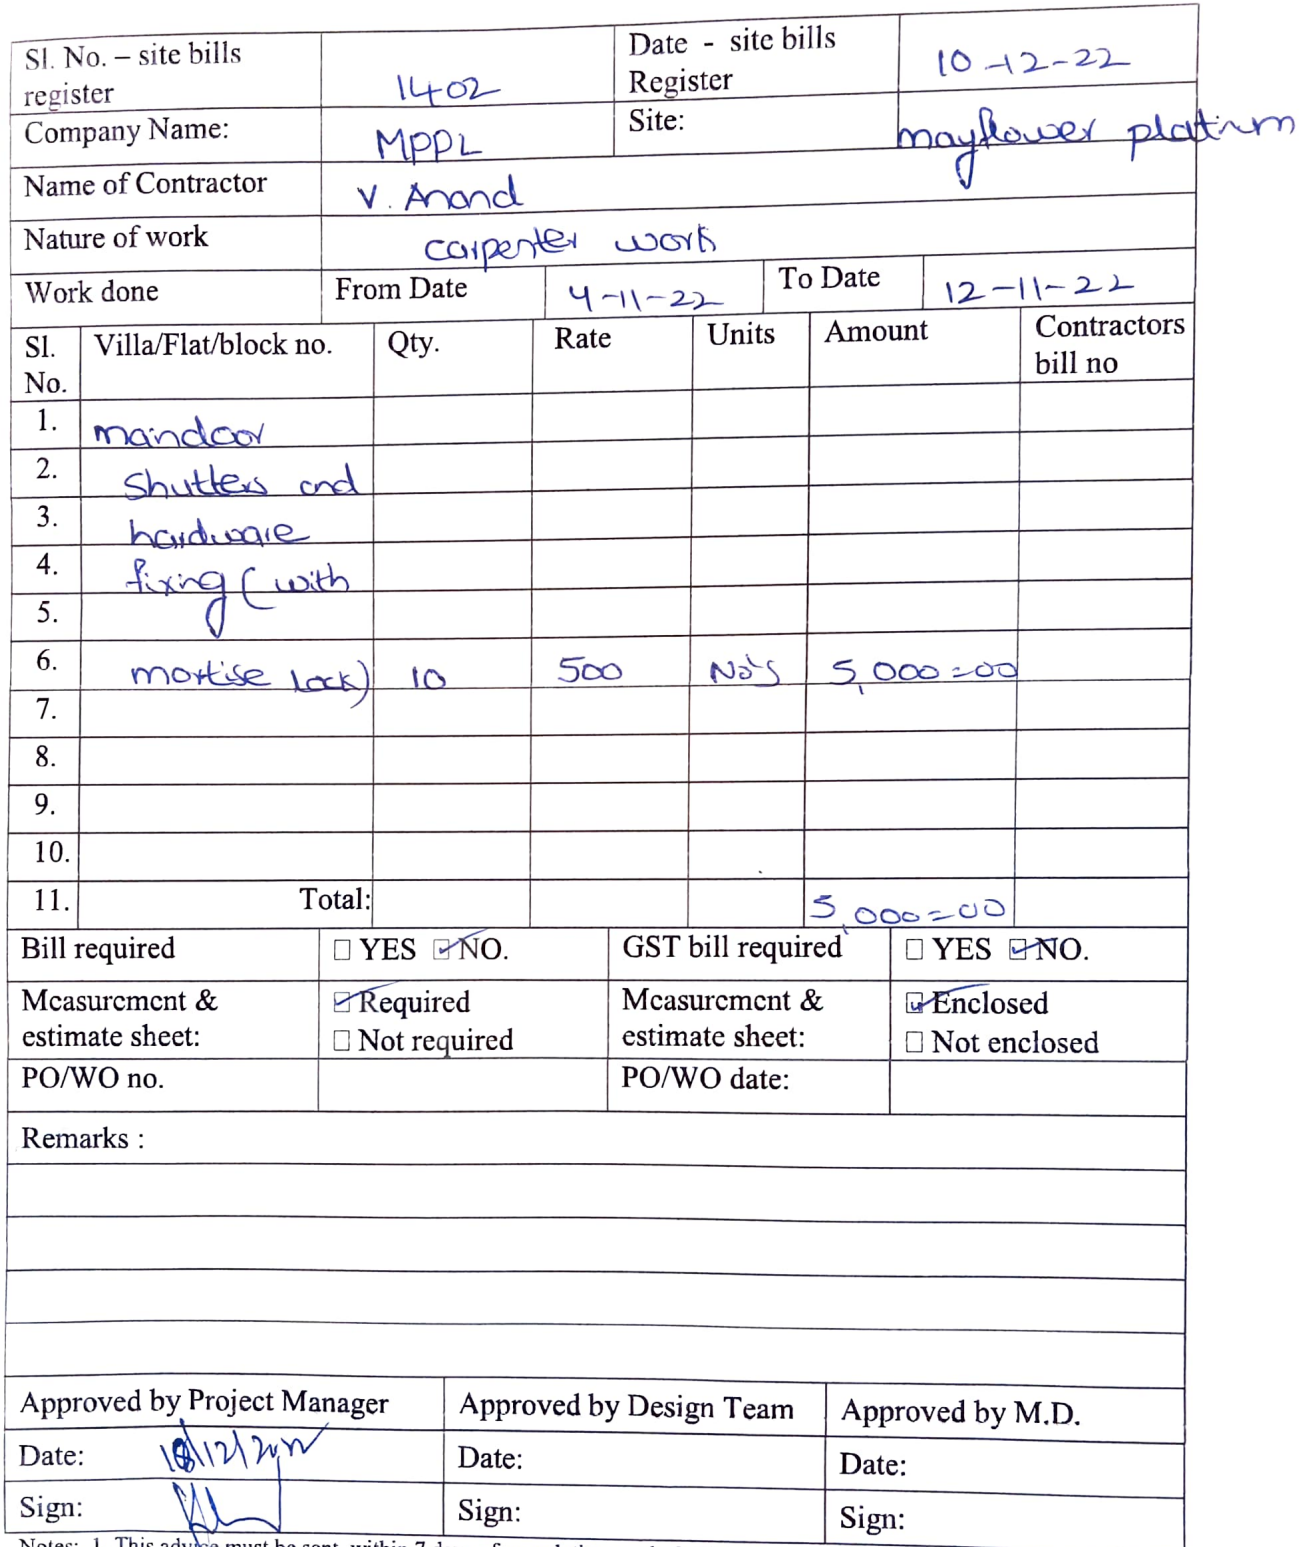 Sl. No. – site bills register 1402 Date - site bills Register 10-12-22
Company Name: MPPL Site: mayflower platinum
Name of Contractor V. Anand
Nature of work carpenter work
Work done From Date 4-11-22 To Date 12-11-22
Sl. No. Villa/Flat/block no. Qty. Rate Units Amount Contractors bill no
1. maindoor
2. Shutters and
3. hardware
4. fixing (with
5.
6. mortise lock) 10 500 No's 5,000=00
7.
8.
9.
10.
11. Total: 5,000=00
Bill required ☐ YES ☑ NO. GST bill required ☐ YES ☑ NO.
Measurement & estimate sheet: ☑ Required ☐ Not required Measurement & estimate sheet: ☑ Enclosed ☐ Not enclosed
PO/WO no. PO/WO date:
Remarks :
Approved by Project Manager Approved by Design Team Approved by M.D.
Date: Date: Date:
Sign: Sign: Sign: